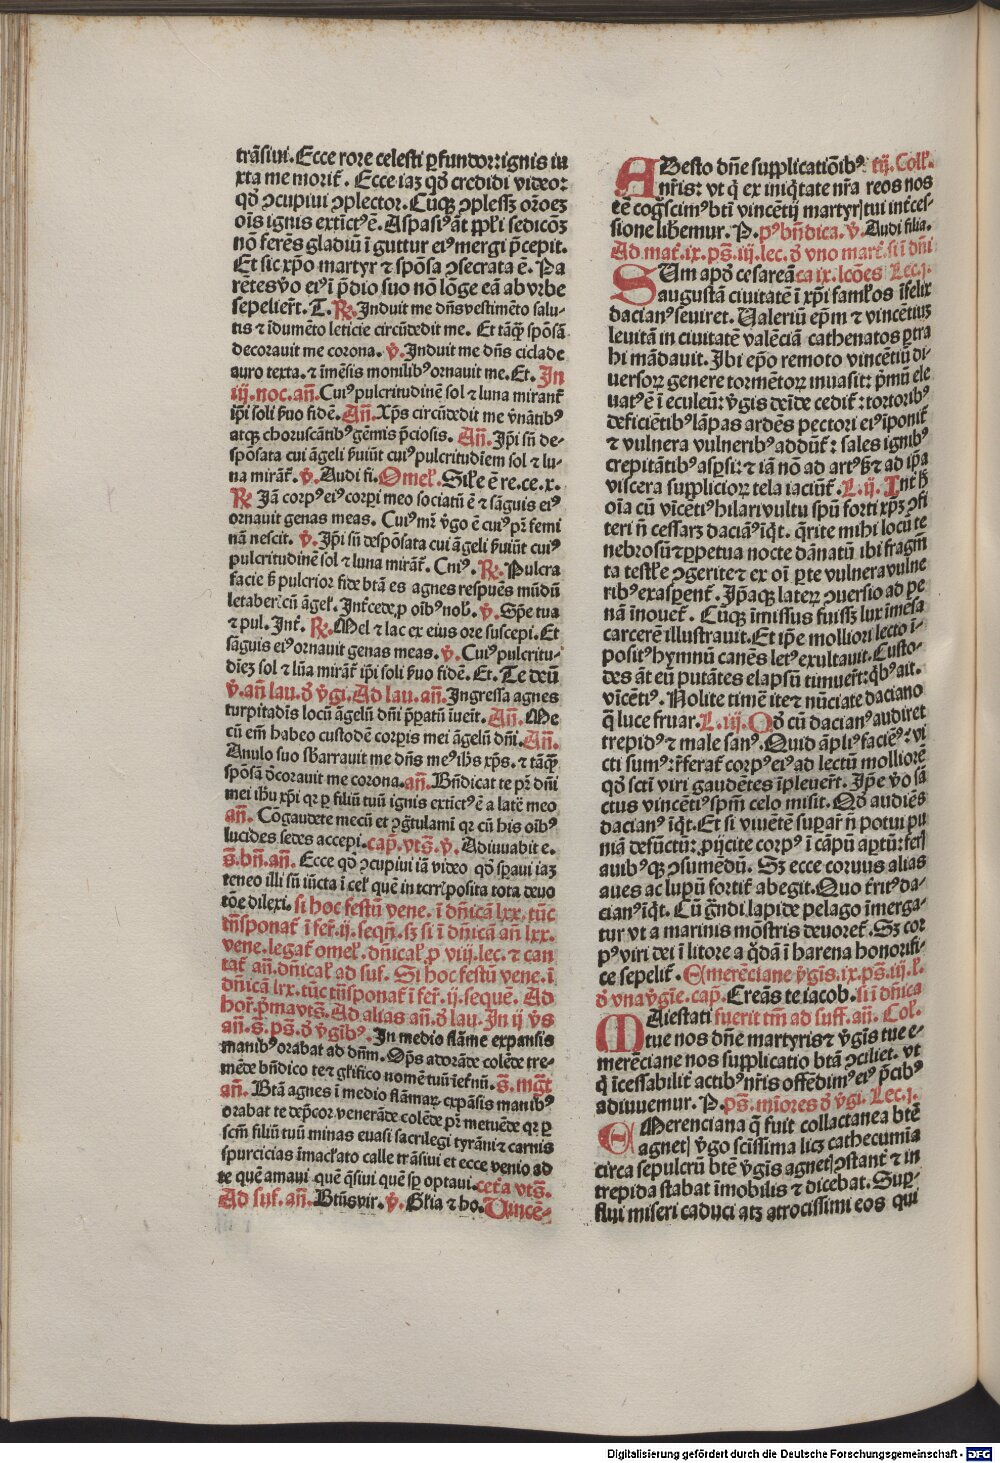 trãsiui. Ecce rore celesti ꝑfundor: ignis iu
xta me morit̃. Ecce iaꝫ qđ credidi video:
qđ ↄcupiui ↄplector. Cũqꝫ ↄplessꝫ orõeꝫ
oĩs ignis extict⁹ ē. Aspasi⁹ ãt ppl̃i sedicõꝫ
nõ ferẽs gladiũ ĩ guttur ei⁹ mergi p̃cepit.
Et sic xp̃o martyr ⁊ spõsa ↄsecrata ē. Pa
rẽtes v̊o ei⁹ ĩ p̃dio suo nõ lõge eã ab vrbe
sepelier̃t. T. R̃. Induit me dñs vestimẽto salu-
tis ⁊ idumẽto leticie circũdedit me. Et tãqꝫ̃ spõsã
decorauit me corona. v̊. Induit me dñs ciclade
auro texta. ⁊ ĩmẽsis monilib⁹ ornauit me. Et. In
iij. noc. añ. Cui⁹ pulcritudinẽ sol ⁊ luna mirant̃
ip̃i soli ẜuo fidẽ. Añ. Xp̃s circũdedit me v̊nãtib⁹
atqꝫ choruscãtib⁹ gẽmis p̃ciosis. Añ. Ip̃i sũ de-
spõsata cui ãgeli ẜuiũt cui⁹ pulcritudiem sol ⁊ lu-
na mirãt̃. v̊. Audi fi. Omel̃. Sil̃e ē re. ce. x.
R̃ Iã corp⁹ ei⁹ corꝑi meo sociatũ ē ⁊ sãguis ei⁹
ornauit genas meas. Cui⁹ mr̃ v̊go ē cui⁹ pr̃ femi
nã nescit. v̊. Ip̃i sũ despõsata cui ãgeli ẜuiũt cui⁹
pulcritudinẽ sol ⁊ luna mirãt̃. Cui⁹. R̃. Pulcra
facie ẜ pulcrior fide btã es agnes respuẽs mũdũ
letaber̃ cũ ãgel̃. Int̃cede ꝓ oĩb⁹ nob̃. v̊. Spẽ tua
⁊ pul. Int̃. R̃. Mel ⁊ lac ex eius ore suscepi. Et
sãguis ei⁹ ornauit genas meas. v̊. Cui⁹ pulcritu-
dieꝫ sol ⁊ lũa mirãt̃ ip̃i soli ẜuo fidẽ. Et. Te deũ
v̊. añ lau. đ v̊gĩ. Ad lau. añ. Ingressa agnes
turpitadis locũ ãgelũ dñi p̃patũ iueit̃. Añ. Me
cũ em̃ habeo custodẽ corꝑis mei ãgelũ dñi. Añ.
Anulo suo sb̃arrauit me dñs me⁹ ih̃s xp̃s. ⁊ tãqꝫ̃
spõsã đcorauit me corona. añ. Bñdicat te pr̃ dñi
mei ih̃u xp̃i qr ꝑ filiũ tuũ ignis extict⁹ ē a latẽ meo
añ. Cõgaudete mecũ et ↄg̃tulami qr cũ his oĩb⁹
lucides sedes accepi. cap̃. vts̃. v̊. Adiuuabit e.
s̃. bñ. añ. Ecce qđ ↄcupiui iã video qđ sꝑaui iaꝫ
teneo illi sũ iũcta i cel̃ quẽ in terr̃ posita tota deuo
tõe dilexi. si hoc festũ vene. ĩ dñicã lxx. tũc
trñsponat̃ ĩ fer̃. ij. seqñ. sꝫ si ĩ dñicã añ lxx.
vene. legat̃ omel̃. dñical̃ ꝓ viij. lec. ⁊ can
tat̃ añ. dñical̃ ad suf. Si hoc festũ vene. ĩ
dñicã lxx. tũc trñsponat̃ ĩ fer̃. ij. sequẽ. Ad
hor̃. p̃mã vts̃. Ad alias añ. đ lau. In ij v̊s
añ. s̃. ps̃. đ v̊gib⁹. In medio flãme expansis
manib⁹ orabat ad dñm. Op̃s adorãde colẽde tre-
mẽde bñdico te ⁊ gl̃ifico nomẽ tuũ ĩet̃nũ. s̃. mgt̃
añ. Btã agnes ĩ medio flãmaꝝ expãsis manib⁹
orabat te dep̃cor venerãde colẽde pr̃ metuẽde qr ꝑ
scm̃ filiũ tuũ minas euasi sacrilegi tyrãni ⁊ carnis
spurcicias ĩmac̃lato calle trãsiui et ecce venio ad
te quẽ amaui quẽ q̃siui quẽ sp̃ optaui. cet̃a vts̃.
Ad suf. añ. Btũs vir. v̊. Gl̃ia ⁊ ho. Uincẽ-
ADesto dñe supplicatiõib⁹ tij. Coll̃.
nr̃is: vt q̃ ex iniq̃tate nr̃a reos nos
eẽ cog̃scim⁹ btĩ vincẽtij martyrꝭ tui int̃ces-
sione libemur. P. p⁹ bñdica. v̊. Audi filia.
Ad mat̃. ix. ps̃. iij. lec. đ vno mart̃. si ĩ dñi
SUm apđ cesareã ca ix. lcões Lec. j.
augustã ciuitatẽ ĩ xp̃i famlos ĩfelix
dacian⁹ seuiret. Ualeriũ ep̃m ⁊ vincẽtiuꝫ
leuitã in ciuitatẽ valẽciã cathenatos ꝑtra
hi mãdauit. Ibi ep̃o remoto vincẽtiũ di-
uersoꝝ genere tormẽtoꝝ inuasit: p̃mũ ele
uat⁹ ē ĩ eculeũ: v̊gis deĩde cedit̃: tortorib⁹
deficiẽtib⁹ lãpas ardẽs pectori ei⁹ ĩponit̃
⁊ vulnera vulnerib⁹ addũt̃: sales ignib⁹
crepitãtib⁹ asꝑsi: ⁊ iã nõ ad art⁹ ẜ ⁊ ad ip̃a
viscera supplicioꝝ tela iaciũt̃. L. ij. Int̃ h̃
oĩa cũ vĩcẽti⁹ hilari vultu spũ forti xp̃ꝫ ↄfi
teri ñ cessarꝫ dacian⁹ iq̃t. q̃rite mihi locũ te
nebrosũ ⁊ ꝑpetua nocte dãnatũ ibi fragm̃
ta testl̃e ↄgerite ⁊ ex oĩ ꝑte vulnera vulne
rib⁹ exasperent̃. Ip̃aqꝫ lateꝝ ↄuersio ad pe
nã inouet̃. Cũqꝫ ĩmissus fuissꝫ lux ĩmẽsa
carcerẽ illustrauit. Et ip̃e molliori lecto ĩ-
posit⁹ hymnũ canẽs let⁹ exultauit. Custo-
des ãt eũ putãtes elapsũ timuer̃t: q̃b⁹ ait.
vĩcẽti⁹. Nolite timẽ ite ⁊ nũciate daciano
q̃ luce fruar. L. iij. Qđ cũ dacian⁹ audiret
trepid⁹ ⁊ male san⁹. Quid ãpli⁹ faciẽ⁹: vi
cti sum⁹: r̃ferat̃ corp⁹ ei⁹ ad lectũ molliorẽ
qđ scti viri gaudẽtes ĩpleuer̃t. Ip̃e v̊o sã
ctus vincẽti⁹ spm̃ celo misit. Qđ audiẽs
dacian⁹ iq̃t. Et si viuẽtẽ suꝑar̃ ñ potui pu
niã defũctũ: ꝓijcite corp⁹ ĩ cãpũ aꝑtũ: ferꝭ
auib⁹qꝫ ↄsumẽdũ. Sꝫ ecce coruus alias
aues ac lupũ fortit̃ abegit. Quo t̃rit⁹ da-
cian⁹ iq̃t. Cũ g̃ndi lapide pelago ĩmerga-
tur vt a marinis mõstris deuoret̃. Sꝫ cor
p⁹ viri dei ĩ litore a q̃dã ĩ harena honorifi-
ce sepelit̃. Emerẽciane v̊gĩs. ix. ps̃. iij. l̃.
đ vna v̊gĩe. cap̃. Creãs te iacob. si ĩ dñica
MAiestati fuerit tm̃ ad suff. añ. Col̃.
tue nos dñe martyris ⁊ v̊gĩs tue e-
merẽciane nos supplicatio btã ↄciliet. vt
q̃ ĩcessabilit̃ actib⁹ nr̃is offẽdim⁹ ei⁹ p̃cib⁹
adiuuemur. P. ps̃. mĩores đ v̊gĩ. Lec. j.
EMerenciana q̃ fuit collactanea btẽ
agnetꝭ v̊go scĩssima licꝫ cathecumĩa
circa sepulcrũ btẽ v̊gĩs agnetꝭ ↄstant̃ ⁊ in
trepida stabat ĩmobilis ⁊ dicebat. Suꝑ-
flui miseri caduci atqꝫ atrocissimi eos qui
Digitalisierung gefördert durch die Deutsche Forschungsgemeinschaft - DFG